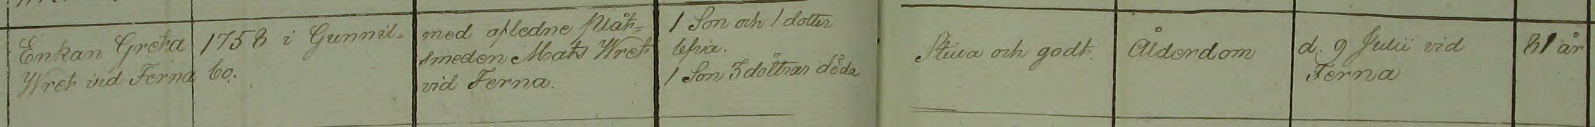 Enkan Greta
Wret vid Ferna
1758 i Gunnil=
bo.
med afledne Plåt=
smeden Mats Wret
vid Ferna.
1 Son och 1 dotter
lefva.
1 Son 3 döttrar döda
Stilla och godt.
Ålderdom
d. 9 Julii vid
Ferna
81 år